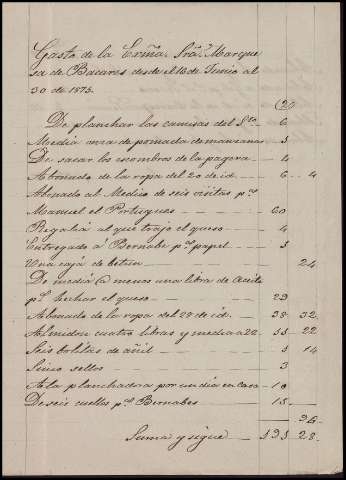 Gasto de la Exma. Sra. Marque
sa de Bacares desde el 16 de Junio al
30 de 1875.
De planchar las camisas del Sto. 6
Media onza de pomada de manzanas 3
De sacar los escombros de la pagera 4
Abonado de la ropa del 20 de id. 6 4
Abonado al Medico de seis visitas pa.
Manuel el Portugues 60
Regalia al que trajo el queso 4
Entregado á Bernabe pa. papel 3
Una caja de betun 24
De media @ menos una libra de aceite
pa. hechar el queso 29
Abonado de la ropa del 28 de id. 38 32
Almidon cuatro libras y media a 22 22
Seis bolitas de añil 3 14
Cinco sellos 3
A la planchadora por un dia en casa 10
De seis cuellos pa. Bernabes 15
96
Suma y sigue 28